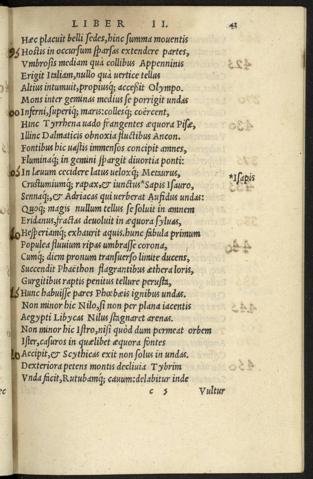 LIBER II. 41
Hæc placuit belli sedes, hinc summa mouentis
95 Hostis in occursum sparsas extendere partes,
Vmbrosis mediam quà collibus Appenninis
Erigit Italiam, nullo quà uertice tellus
Altius intumuit, propiusq; accessit Olympo.
Mons inter geminas medius se porrigit undas
00 Inferni, superiq; maris: collesq; coërcent,
Hinc Tyrrhena uado frangentes æquora Pisæ,
Illinc Dalmaticis obnoxia fluctibus Ancon.
Fontibus hic uastis immensos concipit amnes,
Fluminaq; in gemini spargit diuortia ponti:
05 In læuum cecidere latus ueloxq; Metaurus,
Crustumiumq; rapax, & iunctus *Sapis Isauro, *Isapis
Sennaq;, & Adriacas qui uerberat Aufidus undas:
Quoq; magis nullum tellus se soluit in amnem
Eridanus, fractas deuoluit in æquora syluas,
10 Hesperiamq; exhaurit aquis. hunc fabula primum
Populea fluuium ripas umbrasse corona,
Cumq; diem pronum transuerso limite ducens,
Succendit Phaëthon flagrantibus æthera loris,
Gurgitibus raptis penitus tellure perusta,
15 Hunc habuisse pares Phœbæis ignibus undas.
Non minor hic Nilo, si non per plana iacentis
Aegypti Libycas Nilus stagnaret arenas.
Non minor hic Istro, nisi quòd dum permeat orbem
Ister, casuros in quælibet æquora fontes
20 Accipit, & Scythicas exit non solus in undas.
Dexteriora petens montis decliuia Tybrim
Vnda facit, Rutubamq; cauum: delabitur inde
c 5 Vultur